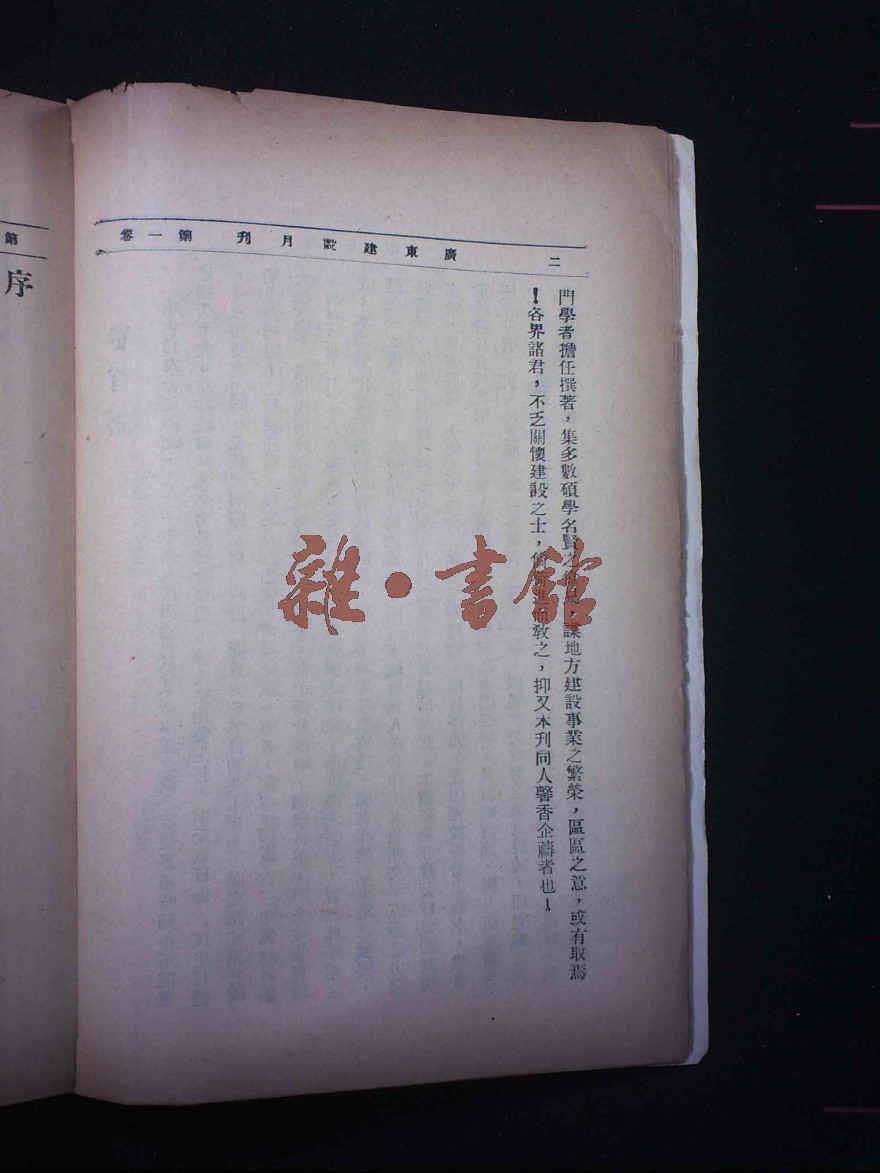 二　廣東建設月刊　第一卷
門學者擔任撰著，集多數碩學名賢之　，謀地方建設事業之繁榮，區區之意，或有取焉
！各界諸君，不乏關懷建設之士，　進而敎之，抑又本刊同人馨香企禱者也！
第
序
雜·書館